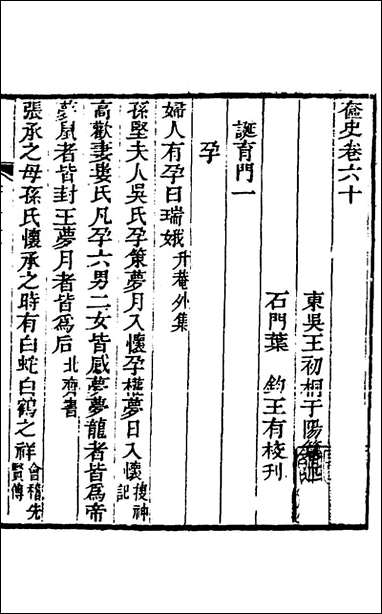 奩史卷六十
東吳王初桐于陽纂述
石門葉 鈞王有校刊
誕育門一
孕
婦人有孕曰瑞娥升菴外集
孫堅夫人吳氏孕策夢月入懷孕權夢日入懷搜神記
高歡妻婁氏凡孕六男二女皆感夢夢龍者皆爲帝
夢鼠者皆封王夢月者皆爲后北齊書
張承之母孫氏懷承之時有白蛇白鶴之祥會稽先賢傳